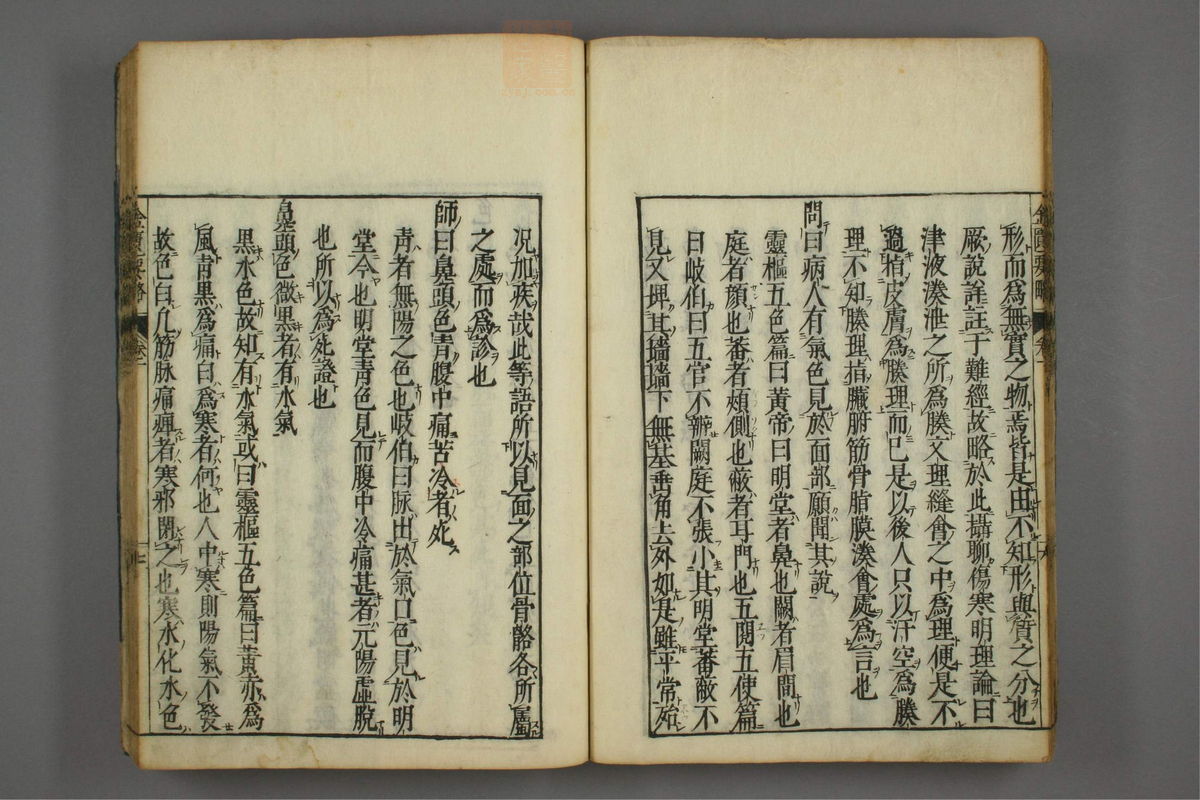 形而爲無實之物焉皆是由不知形與質之分也
厥說詳註于難經故略於此攝聊傷寒明理論曰
津液湊泄之所爲腠文理縫會之中爲理便是不
過指皮膚爲腠理而已是以後人只以汗空爲腠
理不知腠理指臟腑筋骨脂膜湊會處爲言也
問曰病人有氣色見於面部願聞其說
靈樞五色篇曰黃帝曰明堂者鼻也闕者眉間也
庭者顔也蕃者頰側也蔽者耳門也五閱五使篇
曰岐伯曰五官不辨闕庭不張小其明堂蕃蔽不
見又埤其墻墻下無基垂角去外如是雖平常殆
況加疾哉此等語所以見面之部位骨骼各所屬
之處而爲診也
師曰鼻頭色青腹中痛苦冷者死
靑者無陽之色也岐伯曰脉出於氣口色見於明
堂今也明堂靑色見而腹中冷痛甚者元陽虛脫
也所以爲死證也
鼻頭色微黑者有水氣
黑水色故知有水氣或曰靈樞五色篇曰黃赤爲
風靑黑爲痛白爲寒者何也人中寒則陽氣不發
故色白凡筋脉痛痺者寒邪閉之也寒水化水色
金匱要略
卷一